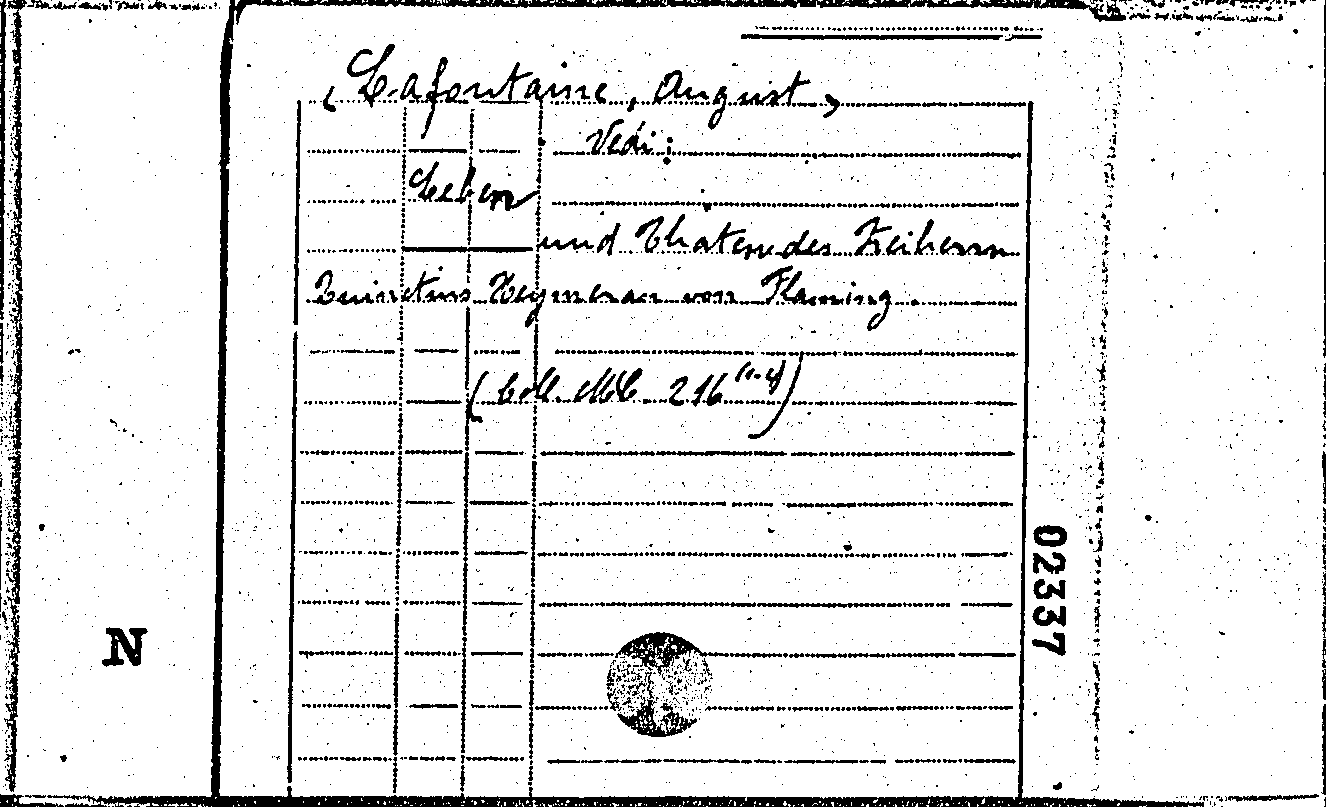 <Lafontaine, August>
Vedi:
Leben
und Thaten des Freiherrn
Quinctius Heymeran von Flaming.
(Coll. It. 216 (1-4))
02337
N